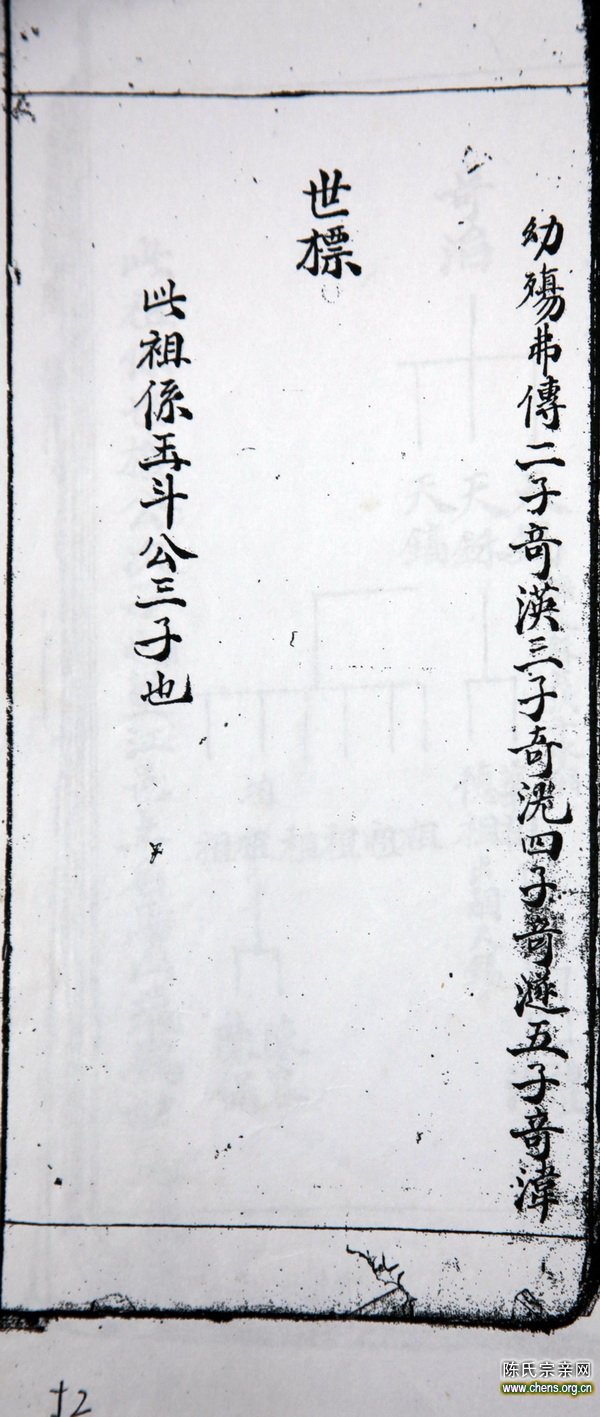 幼殤弗傳二子奇漢三子奇滉四子奇遊五子奇湋
世標
此祖係再斗公三子也
52
陈氏宗亲网
www.chens.org.cn